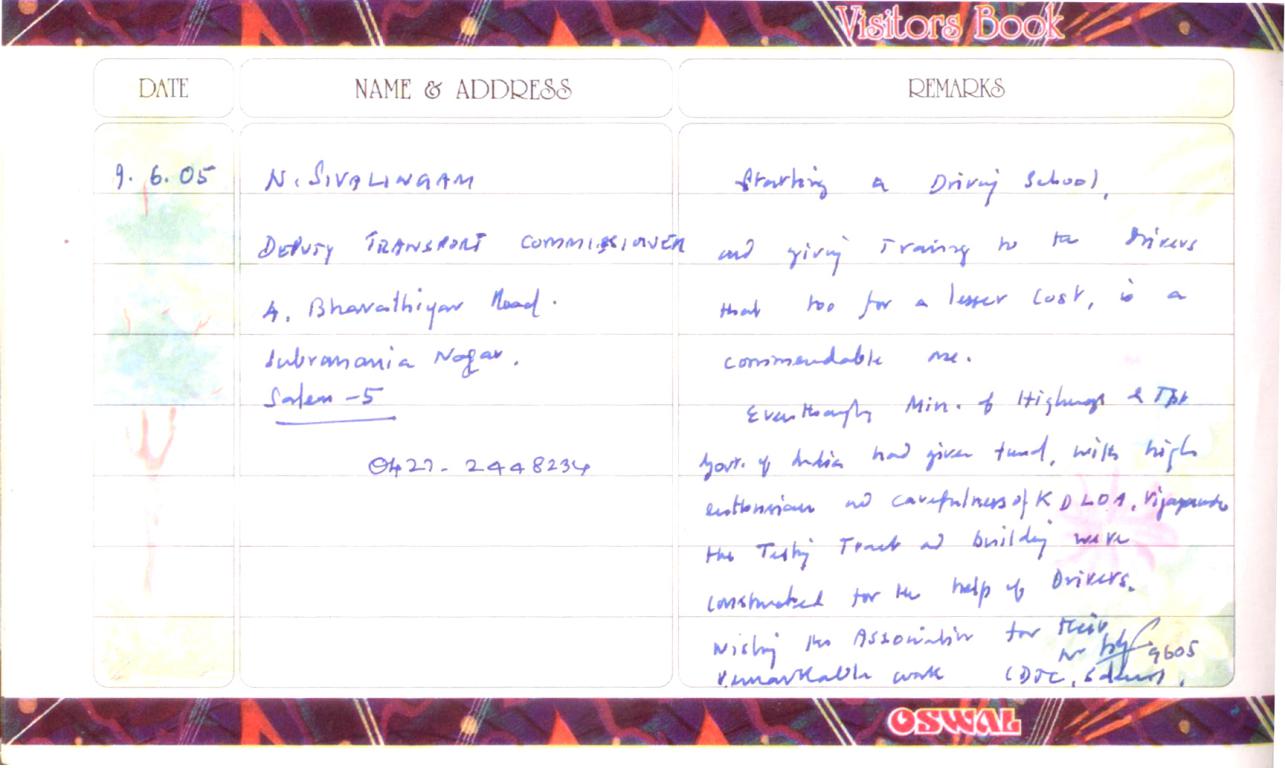 Visitors Book
DATE
NAME & ADDRESS
REMARKS
9.6.05
N. SIVALINGAM
DEPUTY TRANSPORT COMMISSIONER
4, Bharathiyar Road.
Subramania Nagar.
Salem-5
0427-2448234
Starting a Driving School,
and giving Training to the Drivers
that too for a lesser cost, is a
commendable one.
Eventhough Min. of Highways & Tpt
Govt. of India had given fund, with high
enthusiasm and carefulness of KDLOA,
the Testing Track and building were
constructed for the help of Drivers.
Wishing the Association for their
remarkable work
9605
(DTC, Salem).
OSWAL